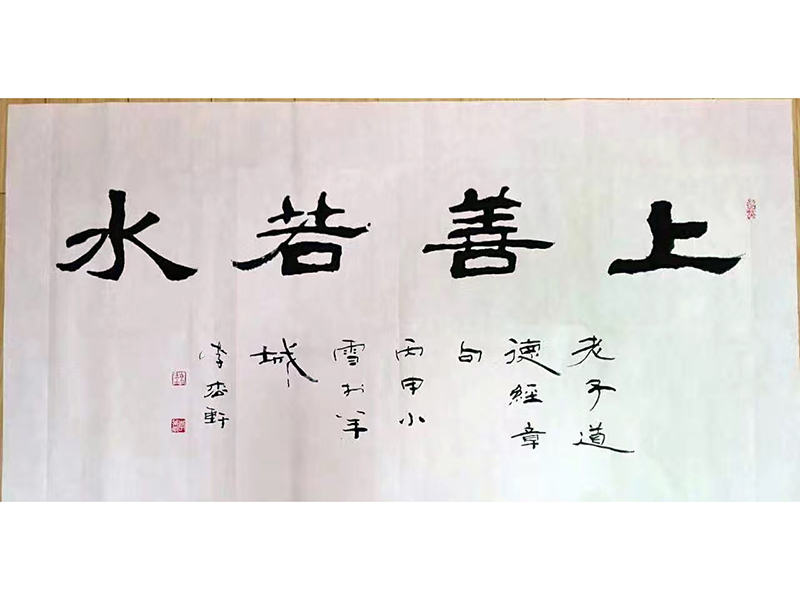 上善若水
老子道
德經章
句
丙申小
雪於羊
城
李
軒